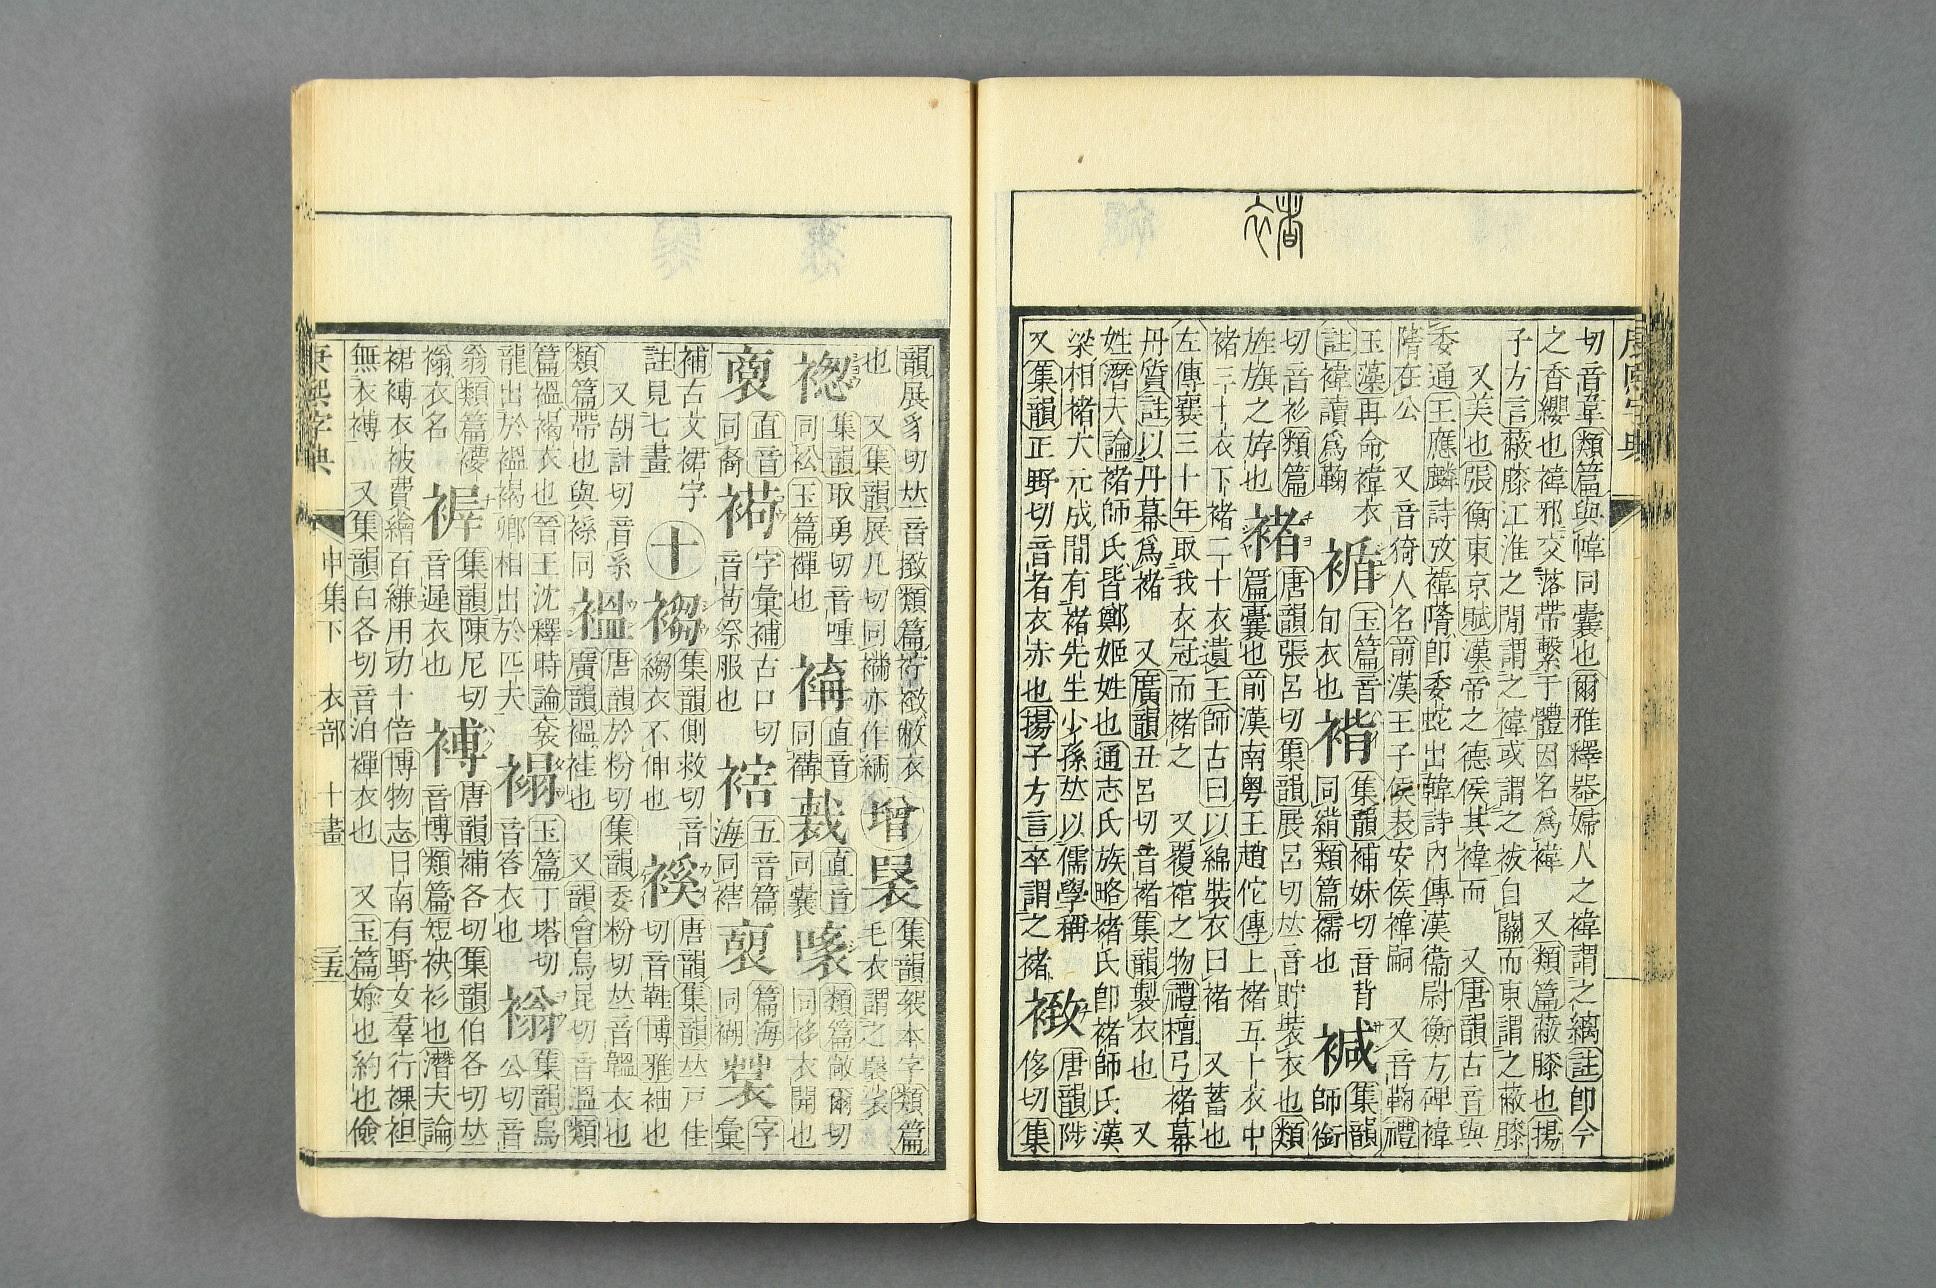 康熙字典
切音韋類篇與幃同囊也爾雅釋器婦人之褘謂之縭註卽今
之香纓也褘邪交落帶繫于體因名爲褘 又類篇蔽膝也揚
子方言蔽膝江淮之閒謂之褘或謂之袚自關而東謂之蔽膝
又美也張衡東京賦漢帝之德侯其褘而 又唐韻古音與
委通王應麟詩攷褘隋卽委蛇出韓詩內傳漢衞尉衡方碑褘
隋在公 又音猗人名前漢王子侯表安侯褘嗣 又音鞠禮
玉藻再命褘衣
註褘讀爲鞠
玉篇音
旬衣也
褙
集韻補妹切音背
同綃類篇襦也
集韻
師銜
切音衫類篇
旌旗之斿也
褚
唐韻張呂切集韻展呂切𠀤音貯裝衣也類
篇囊也前漢南粤王趙佗傳上褚五十衣中
褚三十衣下褚二十衣遺王師古曰以綿裝衣曰褚 又蓄也
左傳襄三十年取我衣冠而褚之 又覆棺之物禮檀弓褚幕
丹質註以丹幕爲褚 又廣韻丑呂切音楮集韻製衣也 又
姓潛夫論褚師氏皆鄭姬姓也通志氏族略褚氏卽褚師氏漢
梁相褚大元成閒有褚先生少孫𠀤以儒學稱
又集韻正野切音者衣赤也揚子方言卒謂之褚
唐韻陟
侈切集
韻展豸切𠀤音撴類篇紩敝衣
也 又集韻展几切同襧
增
集韻袈本字類篇
毛衣謂之
集韻取勇切音喠
同衳玉篇襌也
直音
同褠
直音
同囊
類篇敞爾切
同移衣開也
直音
同裔
字彙補古口切
音苟祭服也
五音篇
海同褚
篇海
同糊
字
彙
補古文裙字
註見七畫
十
集韻側救切音
縐衣不伸也
褉
唐韻集韻𠀤戸佳
切音鞋博雅袖也
又胡計切音系
類篇帶也與禊同
褞
唐韻於粉切集韻委粉切𠀤音韞衣也
廣韻褞袿也 又韻會烏昆切音溫類
篇褞褐衣也晉王沈釋時論袞
龍出於褞褐卿相出於匹夫
褟
玉篇丁塔切
音答衣也
集韻烏
公切音
翁類篇襏
衣名
集韻陳尼切
音遲衣也
褥
唐韻補各切集韻伯各切𠀤
音博類篇短袂衫也潛夫論
裙褥衣被費繒百縑用功十倍博物志日南有野女羣行裸袒
無衣褥 又集韻白各切音泊襌衣也 又玉篇婾也約也儉
康熙字典 申集下 衣部 十畫 三五